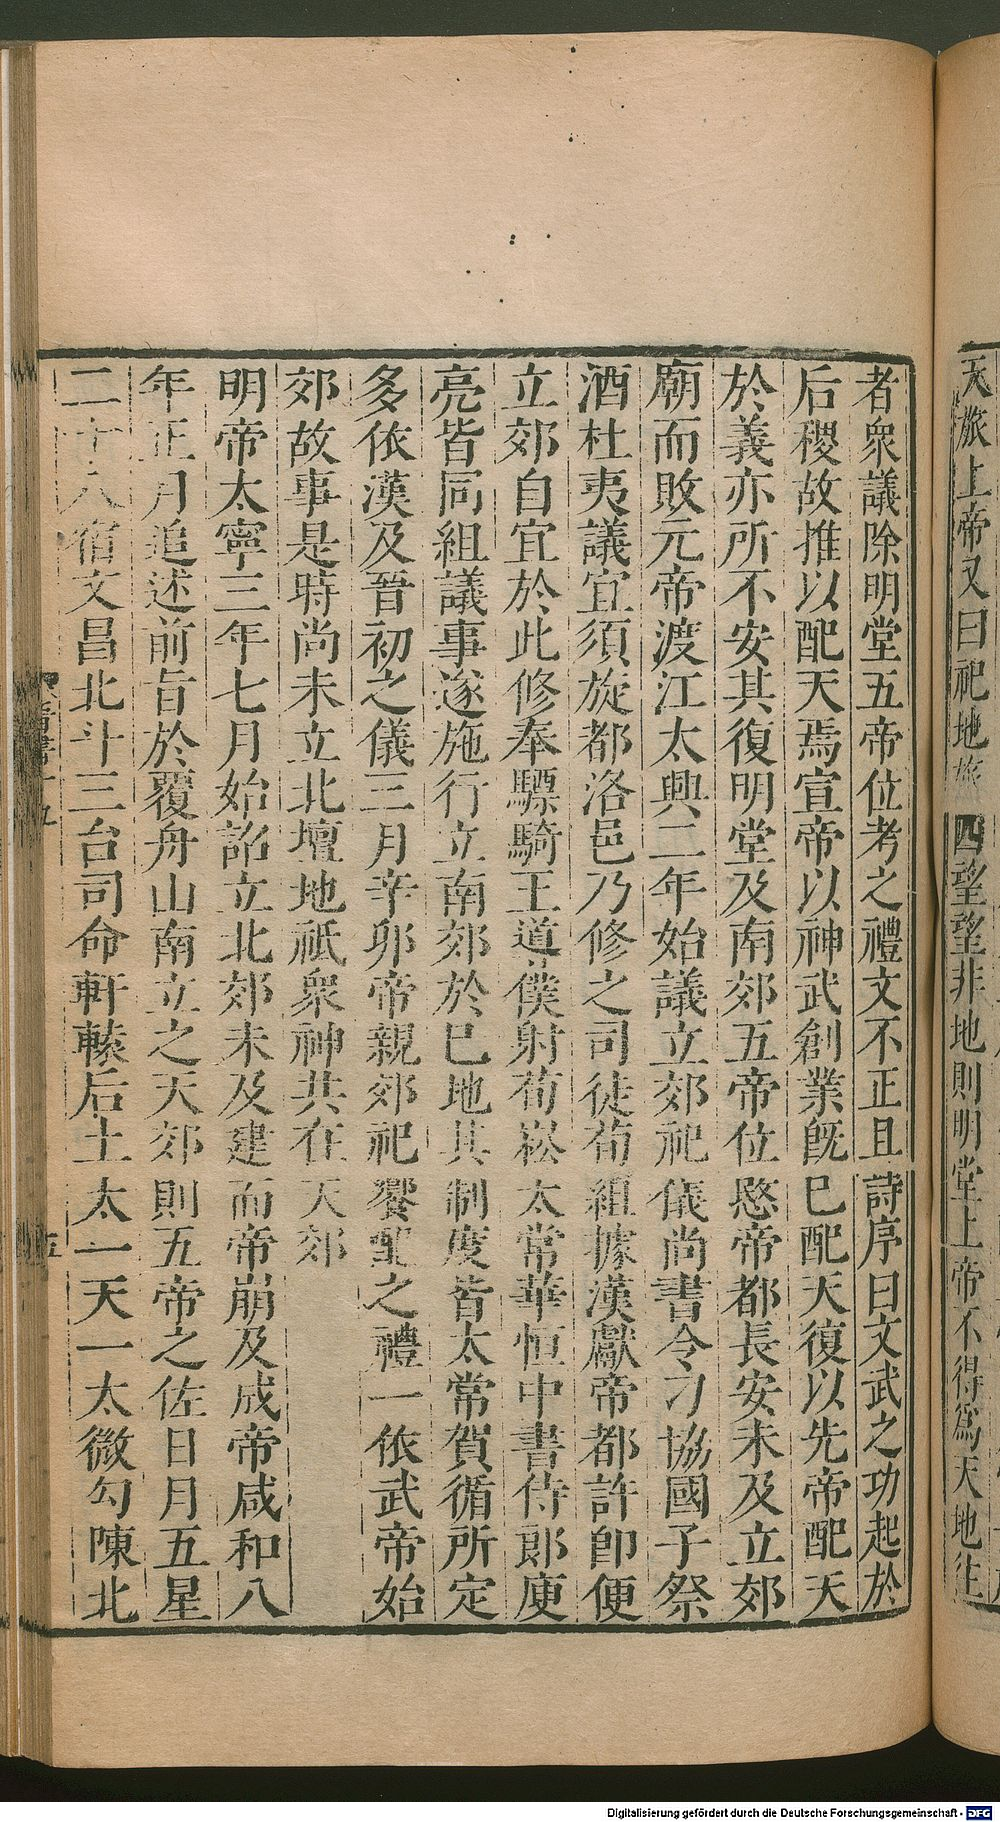 天旅上帝又曰祀地旅四望望非地則明堂上帝不得爲天地往
者衆議除明堂五帝位考之禮文不正且詩序曰文武之功起於
后稷故推以配天焉宣帝以神武創業既巳配天復以先帝配天
於義亦所不安其復明堂及南郊五帝位愍帝都長安未及立郊
廟而敗元帝渡江太興二年始議立郊祀儀尚書令刁協國子祭
酒杜夷議宜須旋都洛邑乃修之司徒荀組據漢獻帝都許卽便
立郊自宜於此修奉驃騎王導僕射荀崧太常華恒中書侍郎庾
亮皆同組議事遂施行立南郊於巳地其制度皆太常賀循所定
多依漢及晉初之儀三月辛卯帝親郊祀饗配之禮一依武帝始
郊故事是時尚未立北壇地祇衆神共在天郊
明帝太寧三年七月始詔立北郊未及建而帝崩及成帝咸和八
年正月追述前旨於覆舟山南立之天郊則五帝之佐日月五星
二十八宿文昌北斗三台司命軒轅后土太一天一太微勾陳北
晉書十五
五
Digitalisierung gefördert durch die Deutsche Forschungsgemeinschaft - DFG